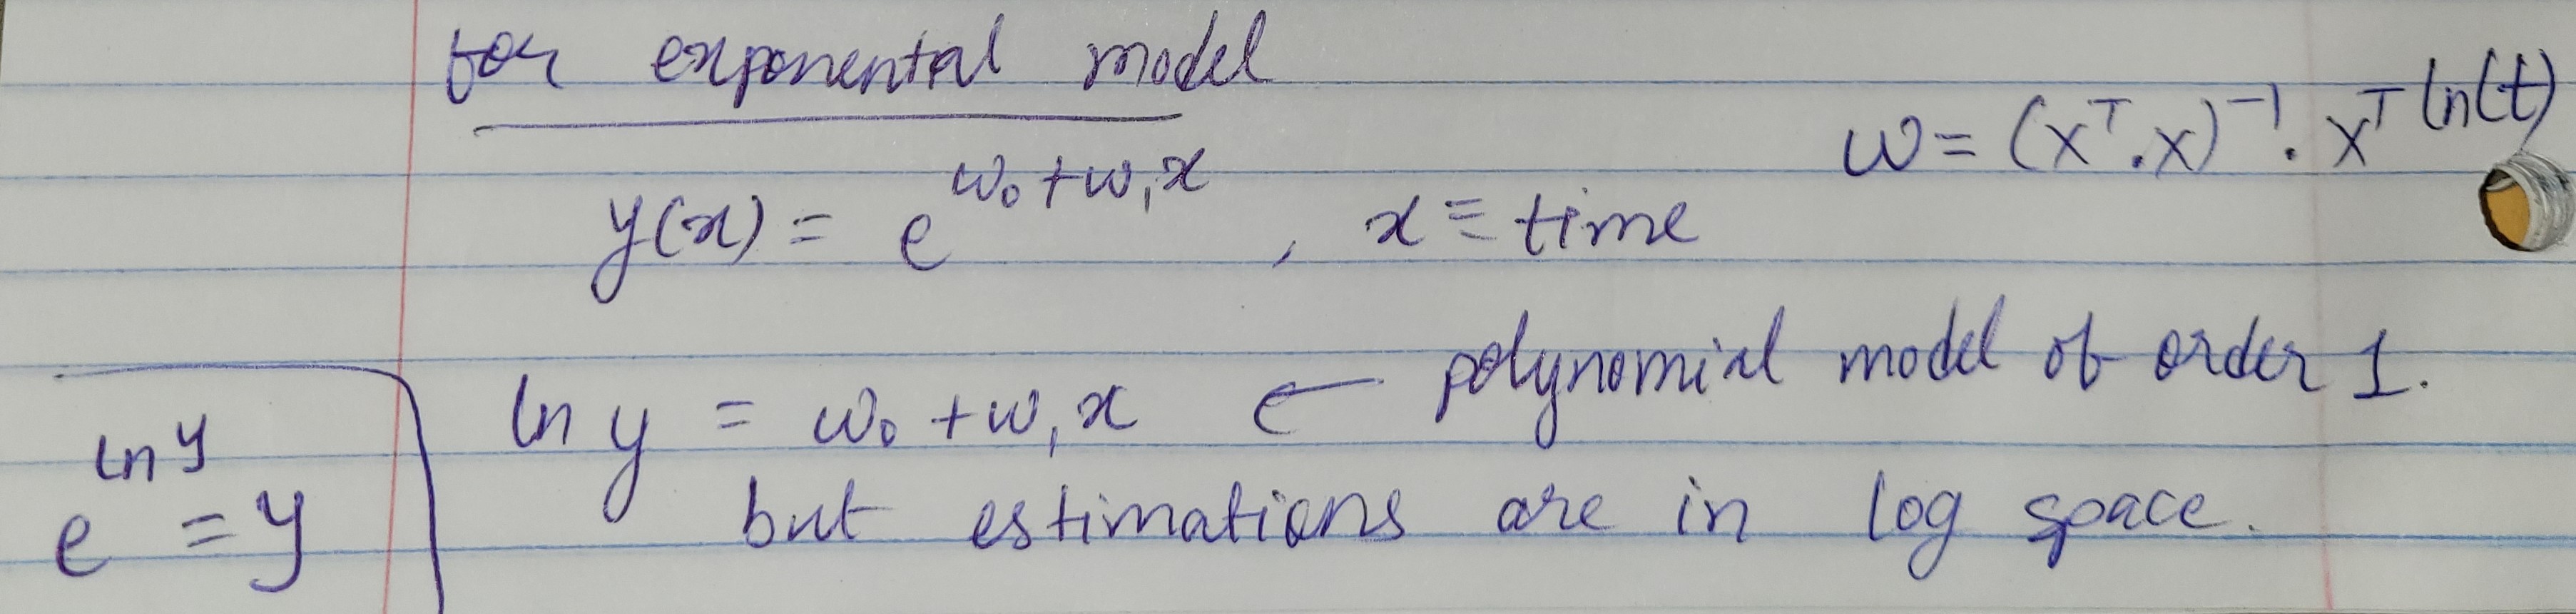 for exponental model
w = (X^T . X)^-1 . X^T ln(t)
y(x) = e^(w₀+w₁x) , x = time
ln y = w₀ + w₁x ← polynomial model of order 1.
but estimations are in log space.
e^(ln y) = y